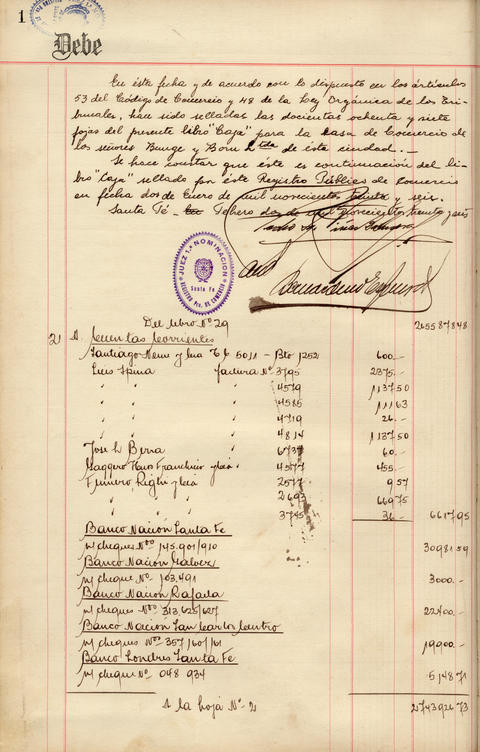 1
Debe
En esta fecha y de acuerdo con lo dispuesto en los artículos
53 del Código de Comercio y 48 de la Ley Orgánica de los Tri-
bunales, han sido selladas las docientas ochenta y siete
fojas del presente libro "Caja" para la Casa de Comercio de
los señores Bunge y Born Ltda de ésta ciudad.—
Se hace constar que éste es continuación del li-
bro "Caja" sellado por éste Registro Público de Comercio
en fecha dos de Enero de mil novecientos treinta y seis.
Santa Fé - Febrero dos de mil novecientos treinta y seis
JUEZ 1ª NOMINACION
Santa Fe
REGISTRO PCO. DE COMERCIO
Del libro Nº 29 265587848
2 A. Cuentas Corrientes
Santiago Neme y Cia 5011 - Bto 1252 600.-
Luis Spina factura Nº 3795 2375.-
" " " 4579 113750
" " " 4585 11163
" " " 4719 26.-
" " " 4814 113750
José L. Berra " 6737 60.-
Maggero Hnos Franchino y Cia " 4577 455.-
Righi y Cia " 2577 957
" " " 2693 66975
3745 36.- 661795
Banco Nacion Santa Fe
n/ cheques Nos 145.901/910 3098159
Banco Nacion Galvez
n/ cheque Nº 103.491 3000.-
Banco Nacion Rafaela
n/ cheques Nos 313.625/627 22400.-
Banco Nacion San Carlos Centro
n/ cheques Nos 357.160/161 19900.-
Banco Londres Santa Fe
n/ cheque Nº 048.934 514871
A la hoja Nº 2 274392673